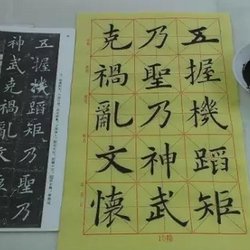 五握機蹈矩
乃聖乃神武
克禍亂文懷
五握機蹈矩乃聖乃
神武克禍亂文